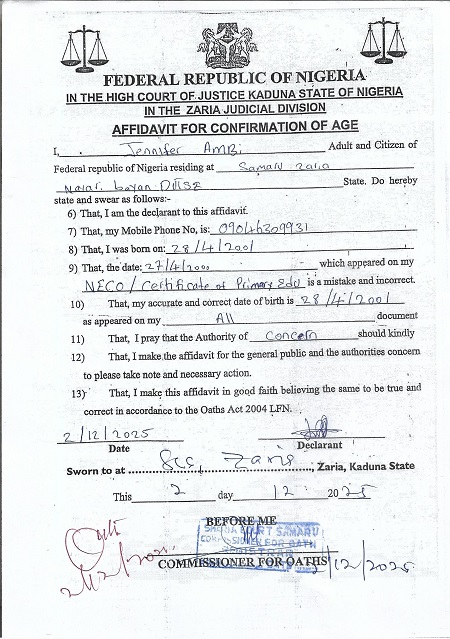 FEDERAL REPUBLIC OF NIGERIA
IN THE HIGH COURT OF JUSTICE KADUNA STATE OF NIGERIA
IN THE ZARIA JUDICIAL DIVISION
AFFIDAVIT FOR CONFIRMATION OF AGE
I, Jennifer AMBI Adult and Citizen of
Federal republic of Nigeria residing at Samaru Zaria
bayan State. Do hereby
state and swear as follows:-
6) That, I am the declarant to this affidavit.
7) That, my Mobile Phone No, is: 09046309931
8) That, I was born on: 28/4/2001
9) That, the date: 27/4/2000 which appeared on my
NECO / Certificate of Primary Edu is a mistake and incorrect.
10) That, my accurate and correct date of birth is 28/4/2001
as appeared on my All document
11) That, I pray that the Authority of Concern should kindly
12) That, I make the affidavit for the general public and the authorities concern
to please take note and necessary action.
13) That, I make this affidavit in good faith believing the same to be true and
correct in accordance to the Oaths Act 2004 LFN.
2/12/2025
Date Declarant
Sworn to at Zaria, Zaria, Kaduna State
This 2 day 12 2025
BEFORE ME
COURT SAMARU
FOR OATH
COMMISSIONER FOR OATHS
2/12/2025
Oath